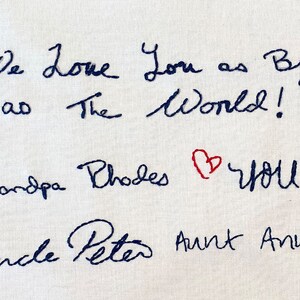 We Love You as B
as The World!
andpa Rhodes ♡ YOU
ncle Peter Aunt Ann